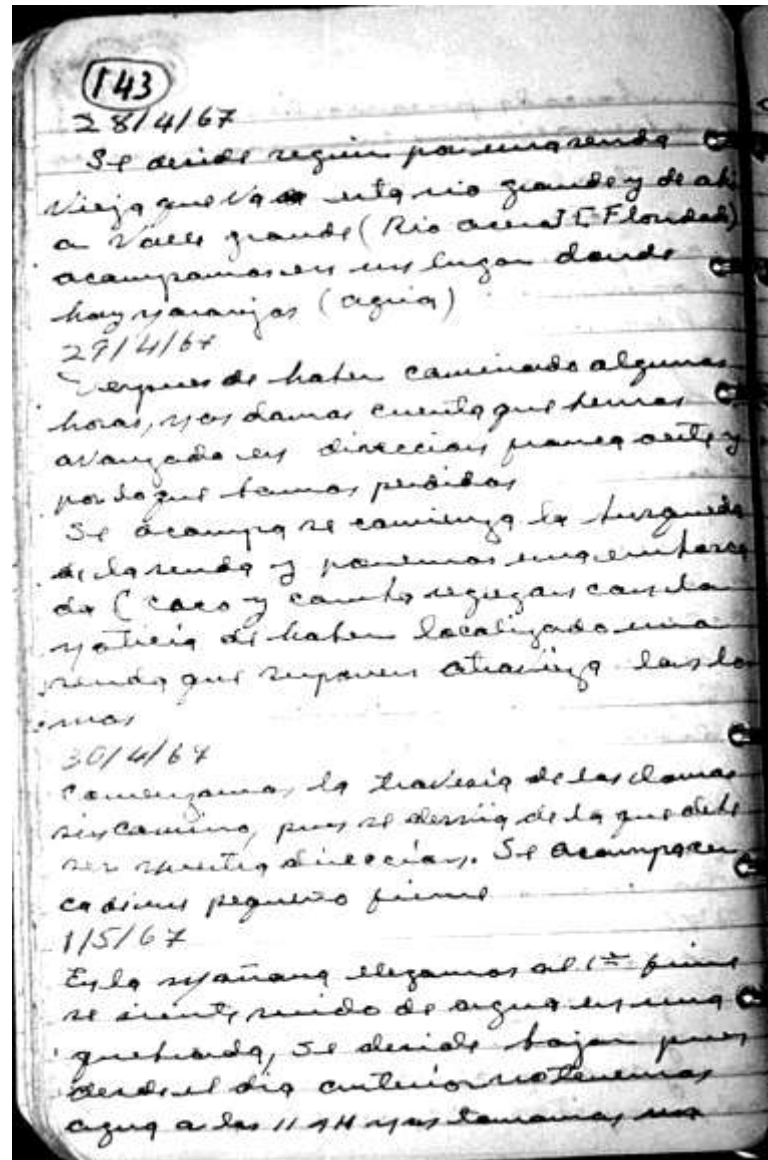 143
28/4/67
Se decide seguir por una senda
vieja que va a rio grande y de ahi
a Valle grande (Rio
acampamos en un lugar donde
hay naranjos (agua)
29/4/67
Despues de haber caminado algunas
horas, nos damos cuenta que hemos
avanzado en direccion franca oeste y
por lo que bamos perdidos
Se acampa se comienza la busqueda
de la senda y ponemos una embosca
da ( Coco y Camba regresan con la
noticia de haber localizado una
senda que suponen atravieza las lo
mas
30/4/67
Comenzamos la travesia de las lomas
sin camino, pues se desvia de la que debe
ser nuestra direccion. Se acampa cer
ca de un pequeño firme
1/5/67
En la mañana llegamos al 1er firme
se siente ruido de agua en una
quebrada, se decide bajar pues
desde el dia anterior no tenemos
agua a las 11 AM nos tomamos